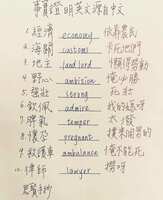 事實證明英文源自中文
1. 經濟 economy 依靠農民
2. 海關 customs 卡死他們
3. 地主 landlord 懶得勞動
4. 野心 ambition 俺必勝
5. 強壯 strong 死壯
6. 欽佩 admire 我的媽呀
7. 脾氣 temper 太潑
8. 懷孕 pregnant
9. 救護車 ambulance 俺不能死
10. 律師 lawyer 撈呀